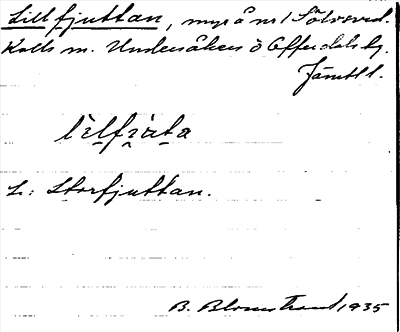 Lillfjuttan, myr å nr 1 Sölvsved.
Kalls sn. Undersåkers o Offerdals tg.
Jämtl l.
lìlfʒùta
L: Storfjuttan.
B. Blomstrand 1935